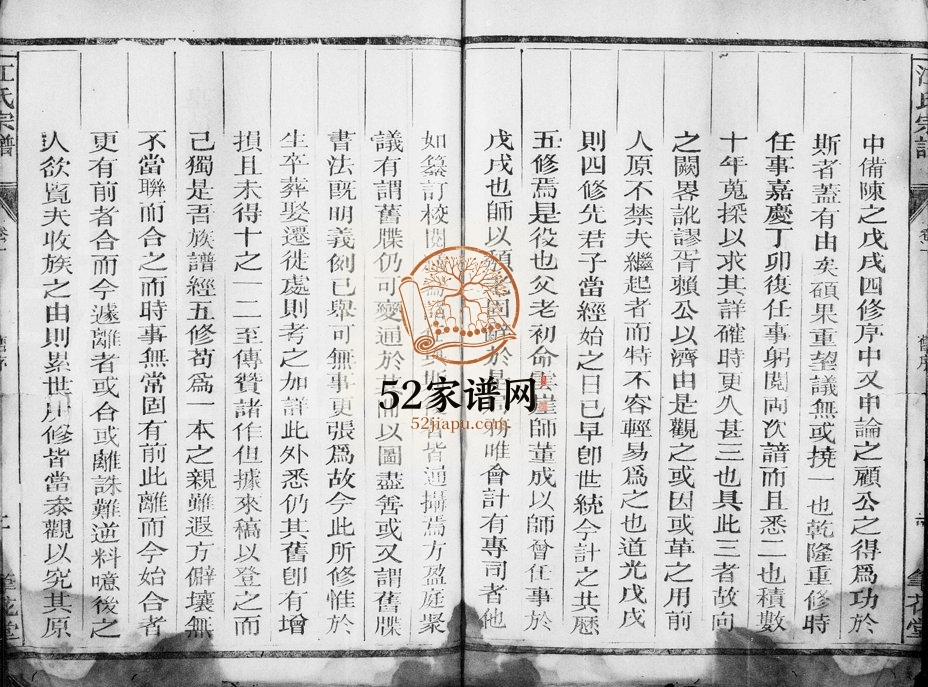 中備陳之戊戌四修序中又申論之顧公之得爲功於
斯者蓋有由矣碩果重望議無或撓一也乾隆重修時
任事嘉慶丁卯復任事躬閱兩次諳而且悉二也積數
十年蒐探以求其詳確時更久甚三也具此三者故向
之闕畧訛謬胥賴公以濟由是觀之或因或革之用前
人原不禁夫繼起者而特不容輕易爲之也道光戊戌
則四修先君子當經始之日已早卽世統今計之共歷
五修焉是役也父老初命雲崖師董成以師曾任事於
戊戌也師以 於 唯會計有專司者他
如纂訂校閱 皆通攝焉方盈庭聚
議有謂舊牒仍可變通於 而以圖盡善或又謂舊牒
書法旣明義例已舉可無事更張爲故今此所修惟於
生卒葬娶遷徙處則考之加詳此外悉仍其舊卽有增
損且未得十之一二至傳贊諸作但據來稿以登之而
己獨是吾族譜經五修苟爲一本之親雖遐方僻壤無
不當聯而合之而時事無常固有前此離而今始合者
更有前者合而今遽離者或合或離誅難逆料噫後之
人欲覧夫收族之由則累世所修皆當泰觀以究其原
江氏宗譜
江氏宗譜
卷
舊序
筆花堂
52家谱网
52jiapu.com